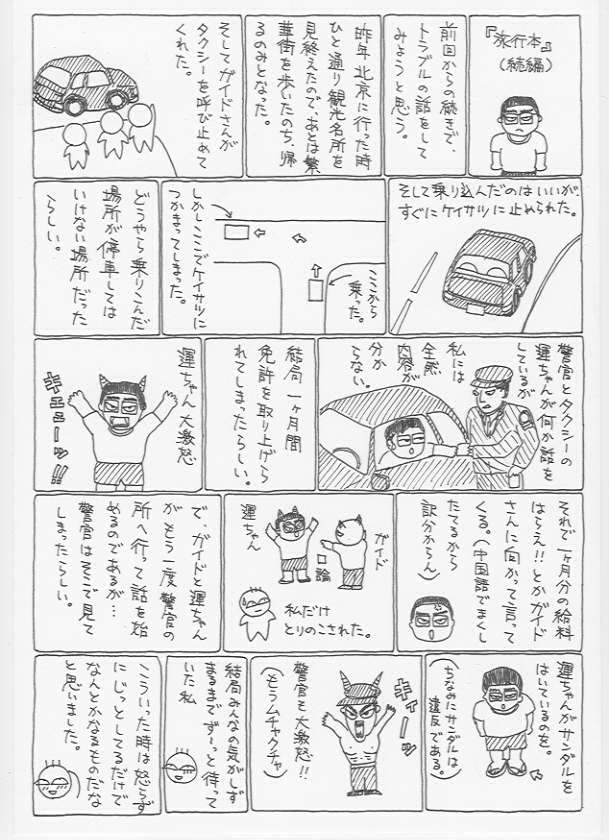 『旅行本』
(続編)
前回からの続きで、
トラブルの話をして
みようと思う。
昨年 北京に行った時
ひと通り観光名所を
見終えたので、あとは繁
華街を歩いたのち、帰
るのみとなった。
そしてガイドさんが
タクシーを呼び止めて
くれた。
そして乗り込んだのはいいが、
すぐにケイサツに止められた。
ここから
乗った。
しかしここでケイサツに
つかまってしまった。
どうやら乗りこんだ
場所が停車しては
いけない場所だった
らしい。
警官とタクシーの
運ちゃんが何か話を
しているが
私には
全然
内容が
分か
らない。
結局 一ヶ月間
免許を取り上げら
れてしまったらしい。
運ちゃん 大激怒
キエーーッ!!
それで一ヶ月分の給料
はらえ!!とかガイド
さんに向かって言って
くる。(中国語でまくし
たてるから
訳分からん)
ガイド
口論
運ちゃん
私だけ
とりのこされた。
で、ガイドと運ちゃん
がもう一度警官の
所へ行って話を始
めるのであるが…
警官はそこで見て
しまったらしい。
運ちゃんがサンダルを
はいているのを。
(ちなみにサンダルは
違反である。)
キィーーッ
警官も大激怒!!
(もうムチャクチャ)
結局みんなの気がしず
まるまでずーっと待って
いた私
こういった時は怒らず
にじっとしてるだけで
なんとかなるものだな
と思いました。